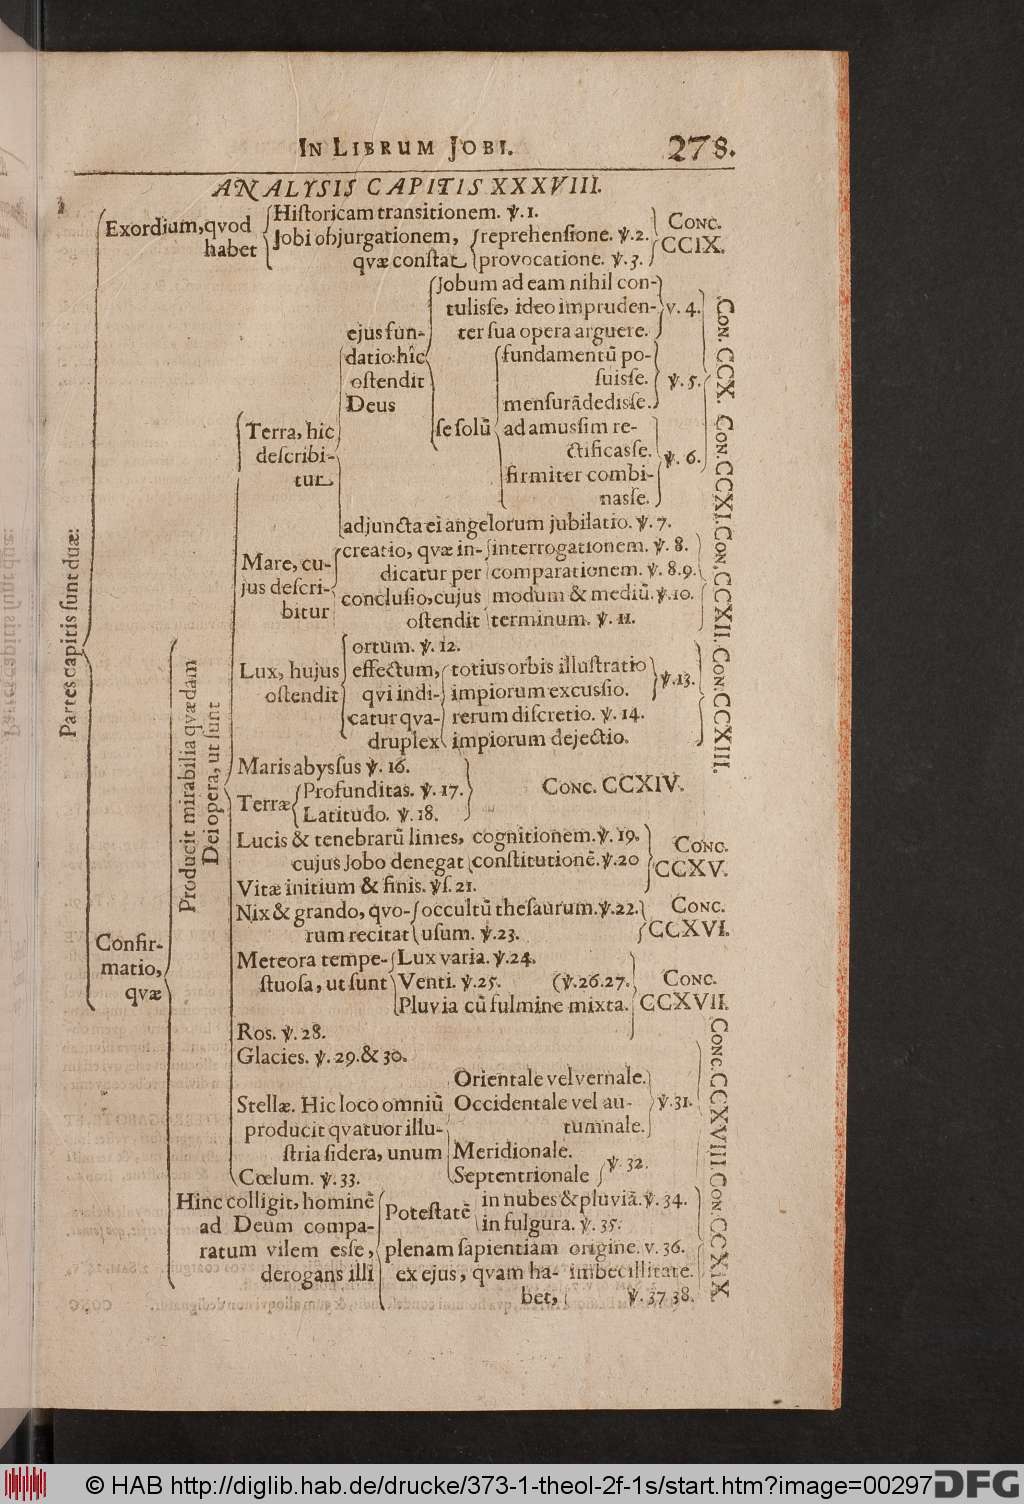 IN LIBRUM JOBI. 278.
ANALYSIS CAPITIS XXXVIII.
Partes capitis sunt duæ:
Exordium, qvod
habet
Historicam transitionem. ℣. 1.
Jobi objurgationem,
qvæ constat
reprehensione. ℣. 2.
provocatione. ℣. 3.
CONC.
CCIX.
Confir-
matio,
qvæ
Producit mirabilia qvædam
Dei opera, ut sunt
Terra, hic
describi-
tur
ejus fun-
datio: hîc
ostendit
Deus
Jobum ad eam nihil con-
tulisse, ideo impruden-
ter sua opera arguere.
v. 4.
se solũ
fundamentũ po-
suisse.
mensurã dedisse.
℣. 5.
ad amussim re-
ctificasse.
firmiter combi-
nasse.
℣. 6.
adjuncta ei angelorum jubilatio. ℣. 7.
CON. CCX. CON. CCXI. CON. CCXII. CON. CCXIII.
Mare, cu-
jus descri-
bitur
creatio, qvæ in-
dicatur per
interrogationem. ℣. 8.
comparationem. ℣. 8.9.
conclusio, cujus
ostendit
modum & mediũ. ℣. 10.
terminum. ℣. 11.
Lux, hujus
ostendit
ortum. ℣. 12.
effectum,
qvi indi-
catur qva-
druplex
totius orbis illustratio
impiorum excussio.
℣. 13.
rerum discretio. ℣. 14.
impiorum dejectio.
Maris abyssus ℣. 16.
Terræ
Profunditas. ℣. 17.
Latitudo. ℣. 18.
CONC. CCXIV.
Lucis & tenebrarũ limes,
cujus Jobo denegat
cognitionem. ℣. 19.
constitutionẽ. ℣. 20
Vitæ initium & finis. ℣s. 21.
CONC.
CCXV.
Nix & grando, qvo-
rum recitat
occultũ thesaurum. ℣. 22.
usum. ℣. 23.
CONC.
CCXVI.
Meteora tempe-
stuosa, ut sunt
Lux varia. ℣. 24.
Venti. ℣. 25. (℣. 26.27.
Pluvia cũ fulmine mixta.
CONC.
CCXVII.
Ros. ℣. 28.
Glacies. ℣. 29. & 30.
Stellæ. Hic loco omniũ
producit qvatuor illu-
stria sidera, unum
Orientale vel vernale.
Occidentale vel au-
tumnale.
℣. 31.
Meridionale.
Septentrionale
℣. 32.
Cœlum. ℣. 33.
Hinc colligit, hominẽ
ad Deum compa-
ratum vilem esse,
derogans illi
Potestatẽ
in nubes & pluviã. ℣. 34.
in fulgura. ℣. 35.
plenam sapientiam
ex ejus, qvam ha-
bet,
origine. v. 36.
imbecillitate.
℣. 37 38.
CONC. CCXVIII. CON. CCXIX.
© HAB http://diglib.hab.de/drucke/373-1-theol-2f-1s/start.htm?image=00297
DFG